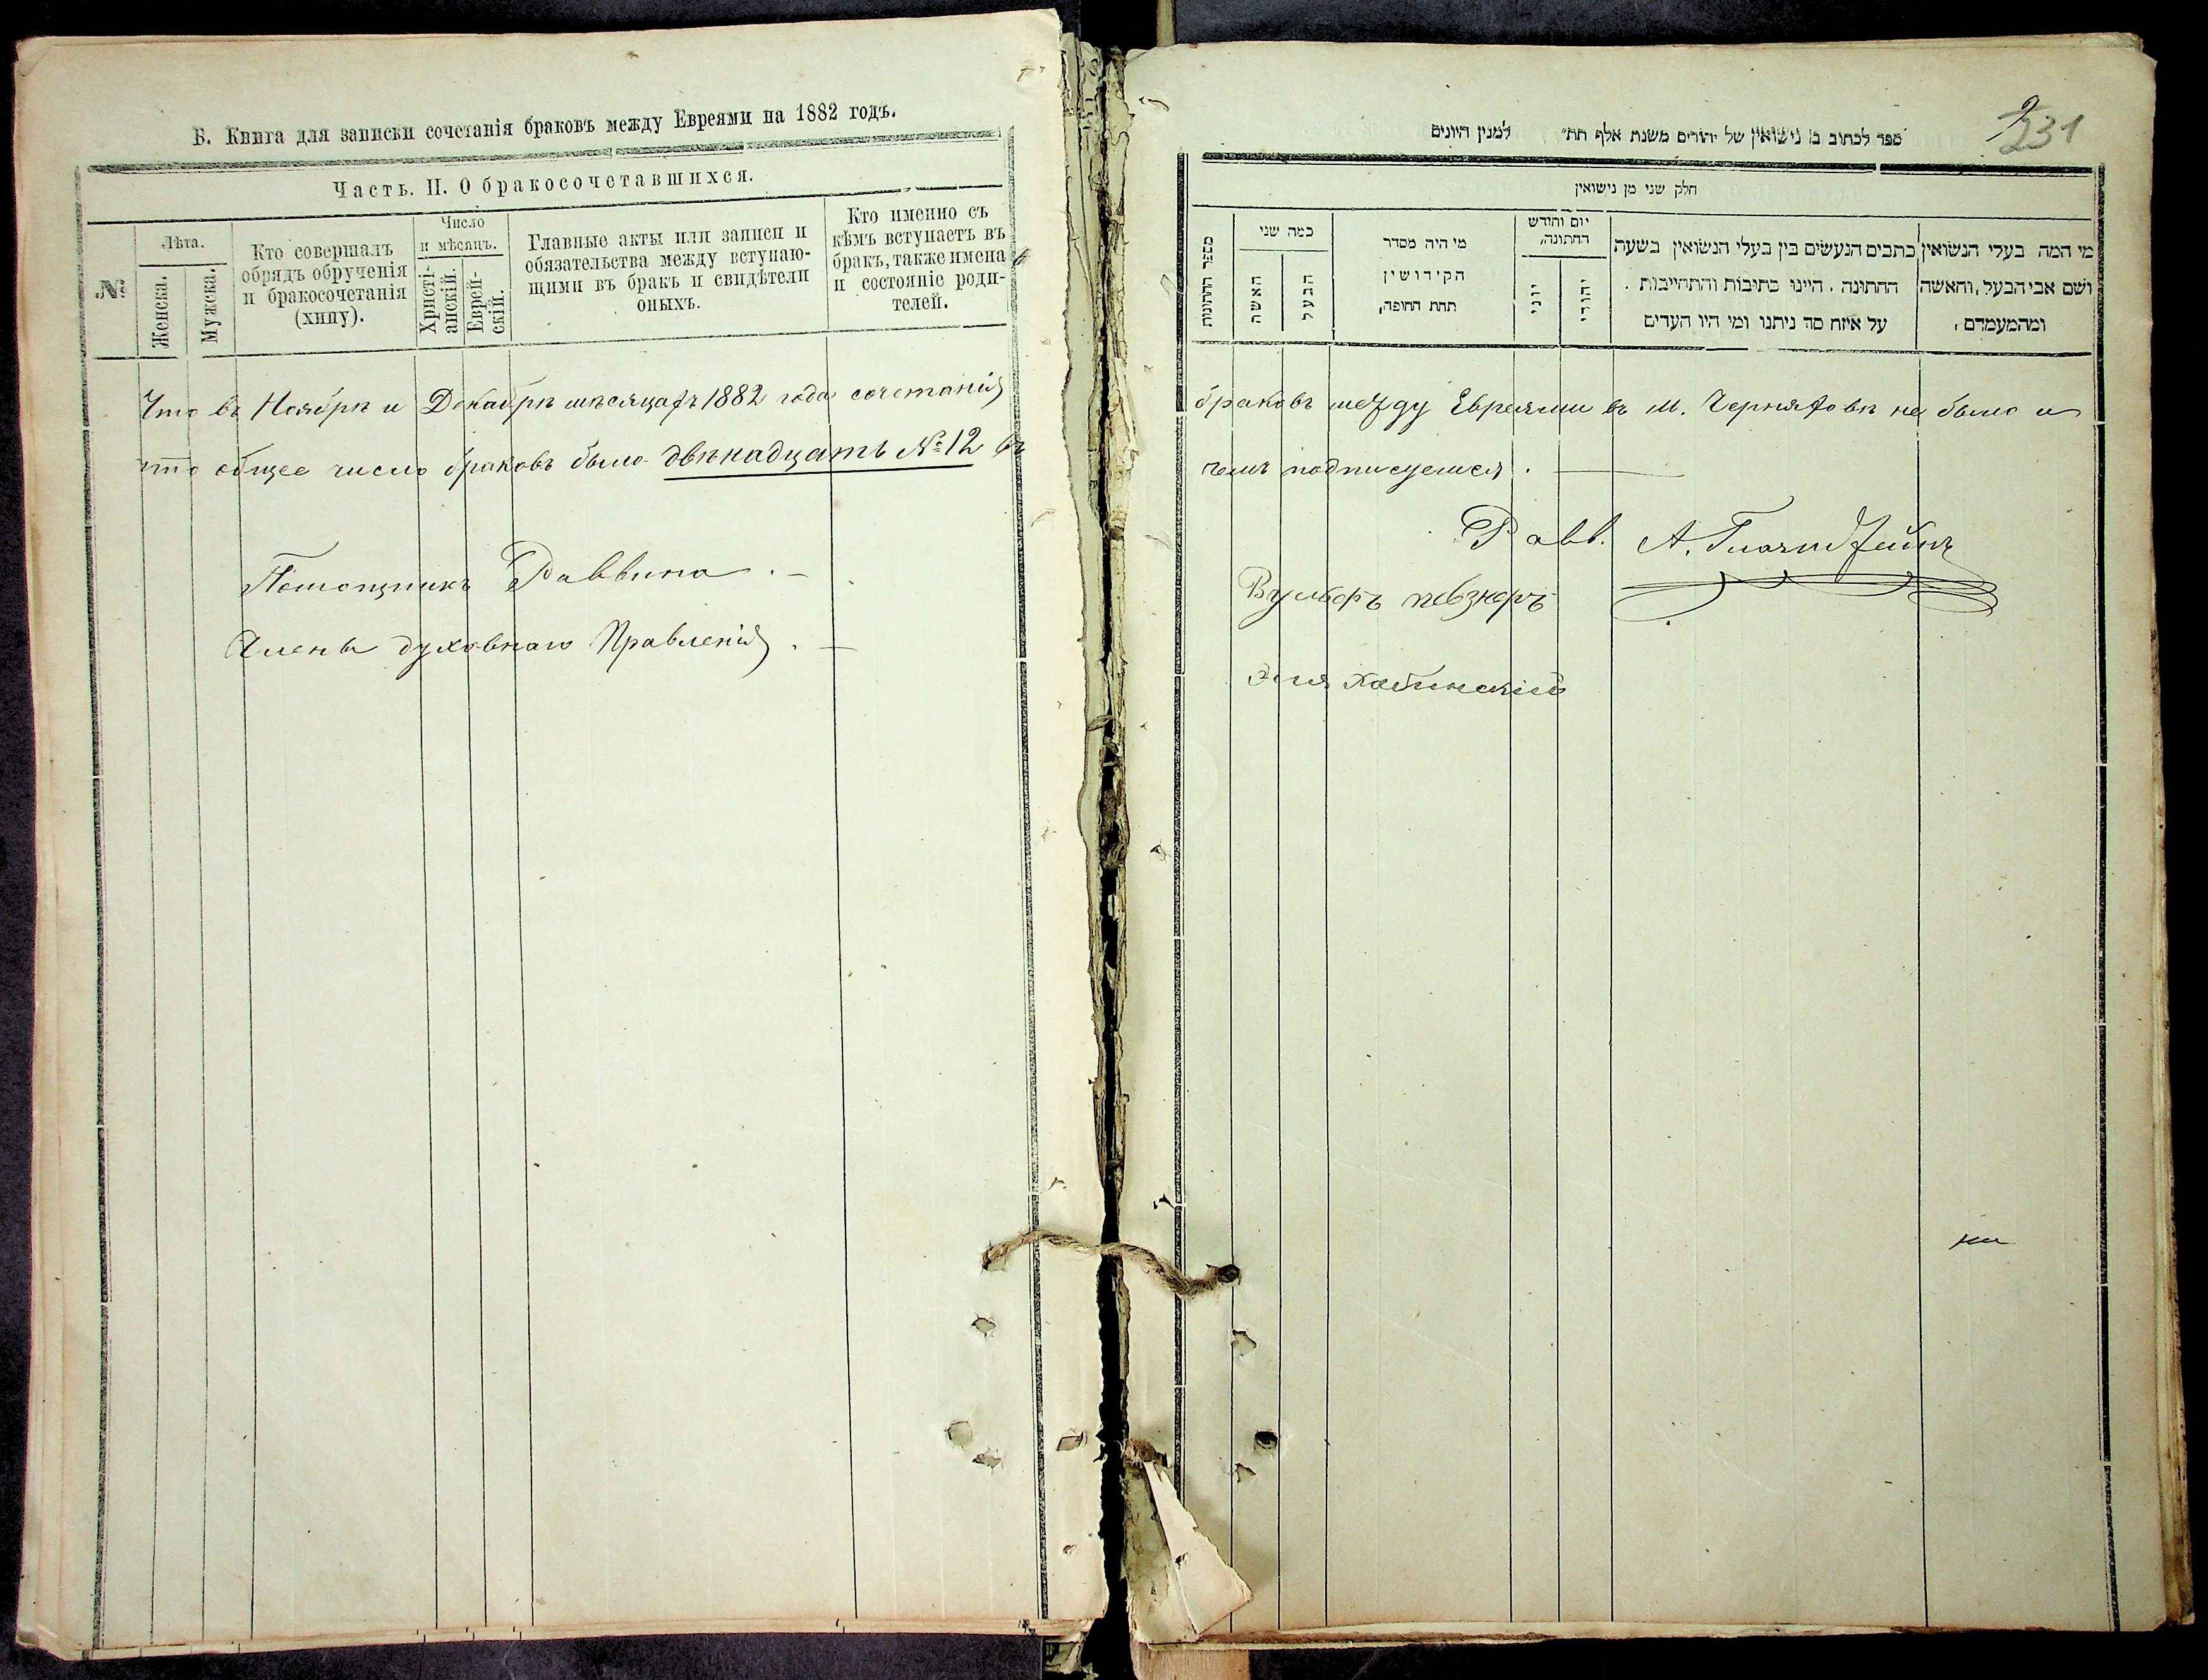 Б. Книга для записки сочетанія браковъ между Евреями на 1882 годъ.
Часть. II. О бракосочетавшихся.
№
Лѣта.
Женска.
Мужска.
Кто совершалъ
обрядъ обрученія
и бракосочетанія
(хипу).
Число
и мѣсяцъ.
Христі-
анскій.
Еврей-
скій.
Главные акты или записи и
обязательства между вступаю-
щими въ бракъ и свидѣтели
оныхъ.
Кто именно съ
кѣмъ вступаетъ въ
бракъ, также имена
и состояніе роди-
телей.
Что въ Ноябрѣ и Декабрѣ мѣсяцахъ 1882 года сочетанія
что общее число браковъ было двѣнадцать № 12 въ
Помощникъ Раввина. —
Члены духовнаго Правленія. —
231
ספר לכתוב בו נישואין של יהודים משנת אלף תת״ למנין היונים
חלק שני מן נישואין
מספר החתונות
כמה שני
האשה
הבעל
מי היה מסדר
הקידושין
תחת החופה,
יום וחודש
החתונה,
יוני
יהודי
כתבים הנעשים בין בעלי הנשואין בשעת
החתונה . היינו כתיבות והתחייבות .
על איזה סך ניתנו ומי היו העדים
מי המה בעלי הנשואין
ושם אבי הבעל, והאשה
ומהמעמדם,
браковъ между Евреями въ м. Черняховѣ не было и
чемъ подписуемся. —
Равв. А.
Вульфъ певзнеръ
Эля Хабинскій